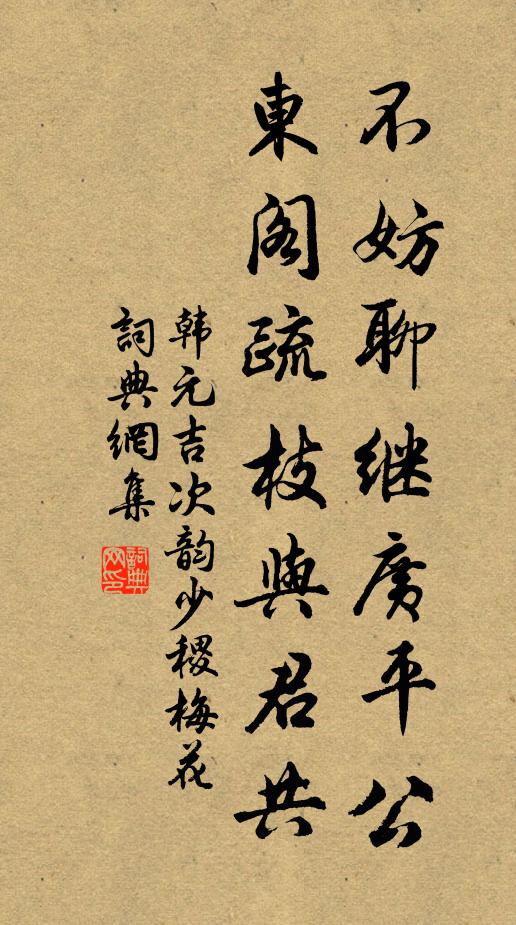 不妨聊继廣平公
東阁疏枝與君共
韩元吉次韵少稷梅花
詞典網集
詞典網印